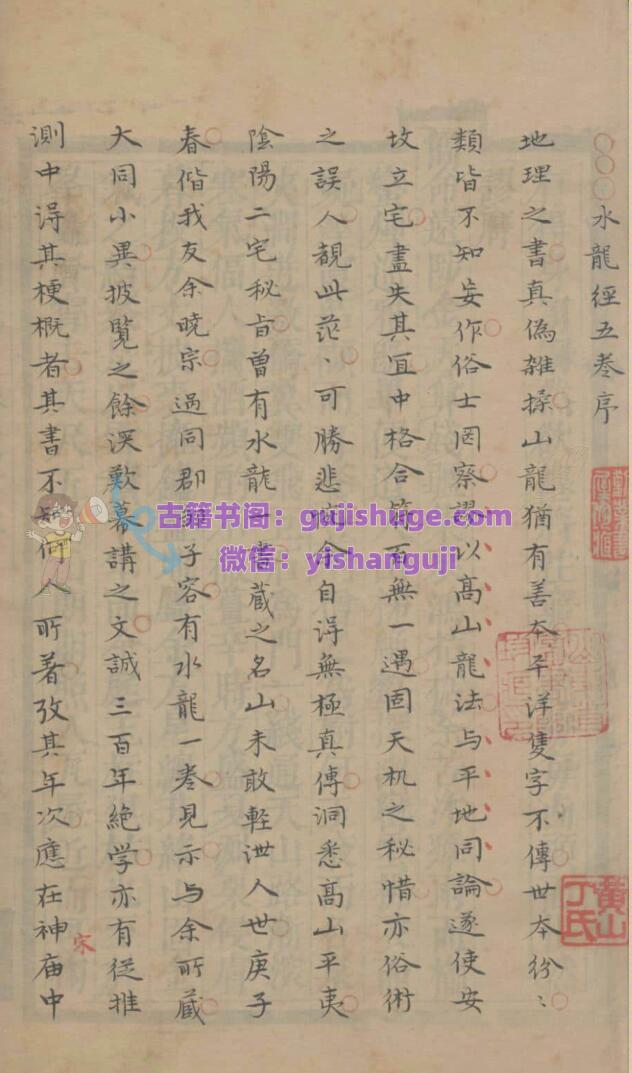 水龍經五卷序
地理之書真偽雜揉山龍猶有善本平洋隻字不傳世本紛〻
類皆不知妄作俗士罔察謬以高山龍法与平地同論遂使安
坟立宅盡失其宜中格合符百無一遇固天机之秘惜亦俗術
之誤人覩此茫〻可勝悲余自得無極真傳洞悉高山平夷
陰陽二宅秘旨曽有水龍一書蔵之名山未敢輕泄人世庚子
春偕我友余曉宗過同郡子容有水龍一卷見示与余所蔵
大同小異披覧之餘深歎幕講之文誠三百年絶学亦有従推
測中得其梗概者其書不何人所著攷其年次應在神庙中
宋
黄山丁氏
古籍书阁：gujishuge.com
微信：yishanguji